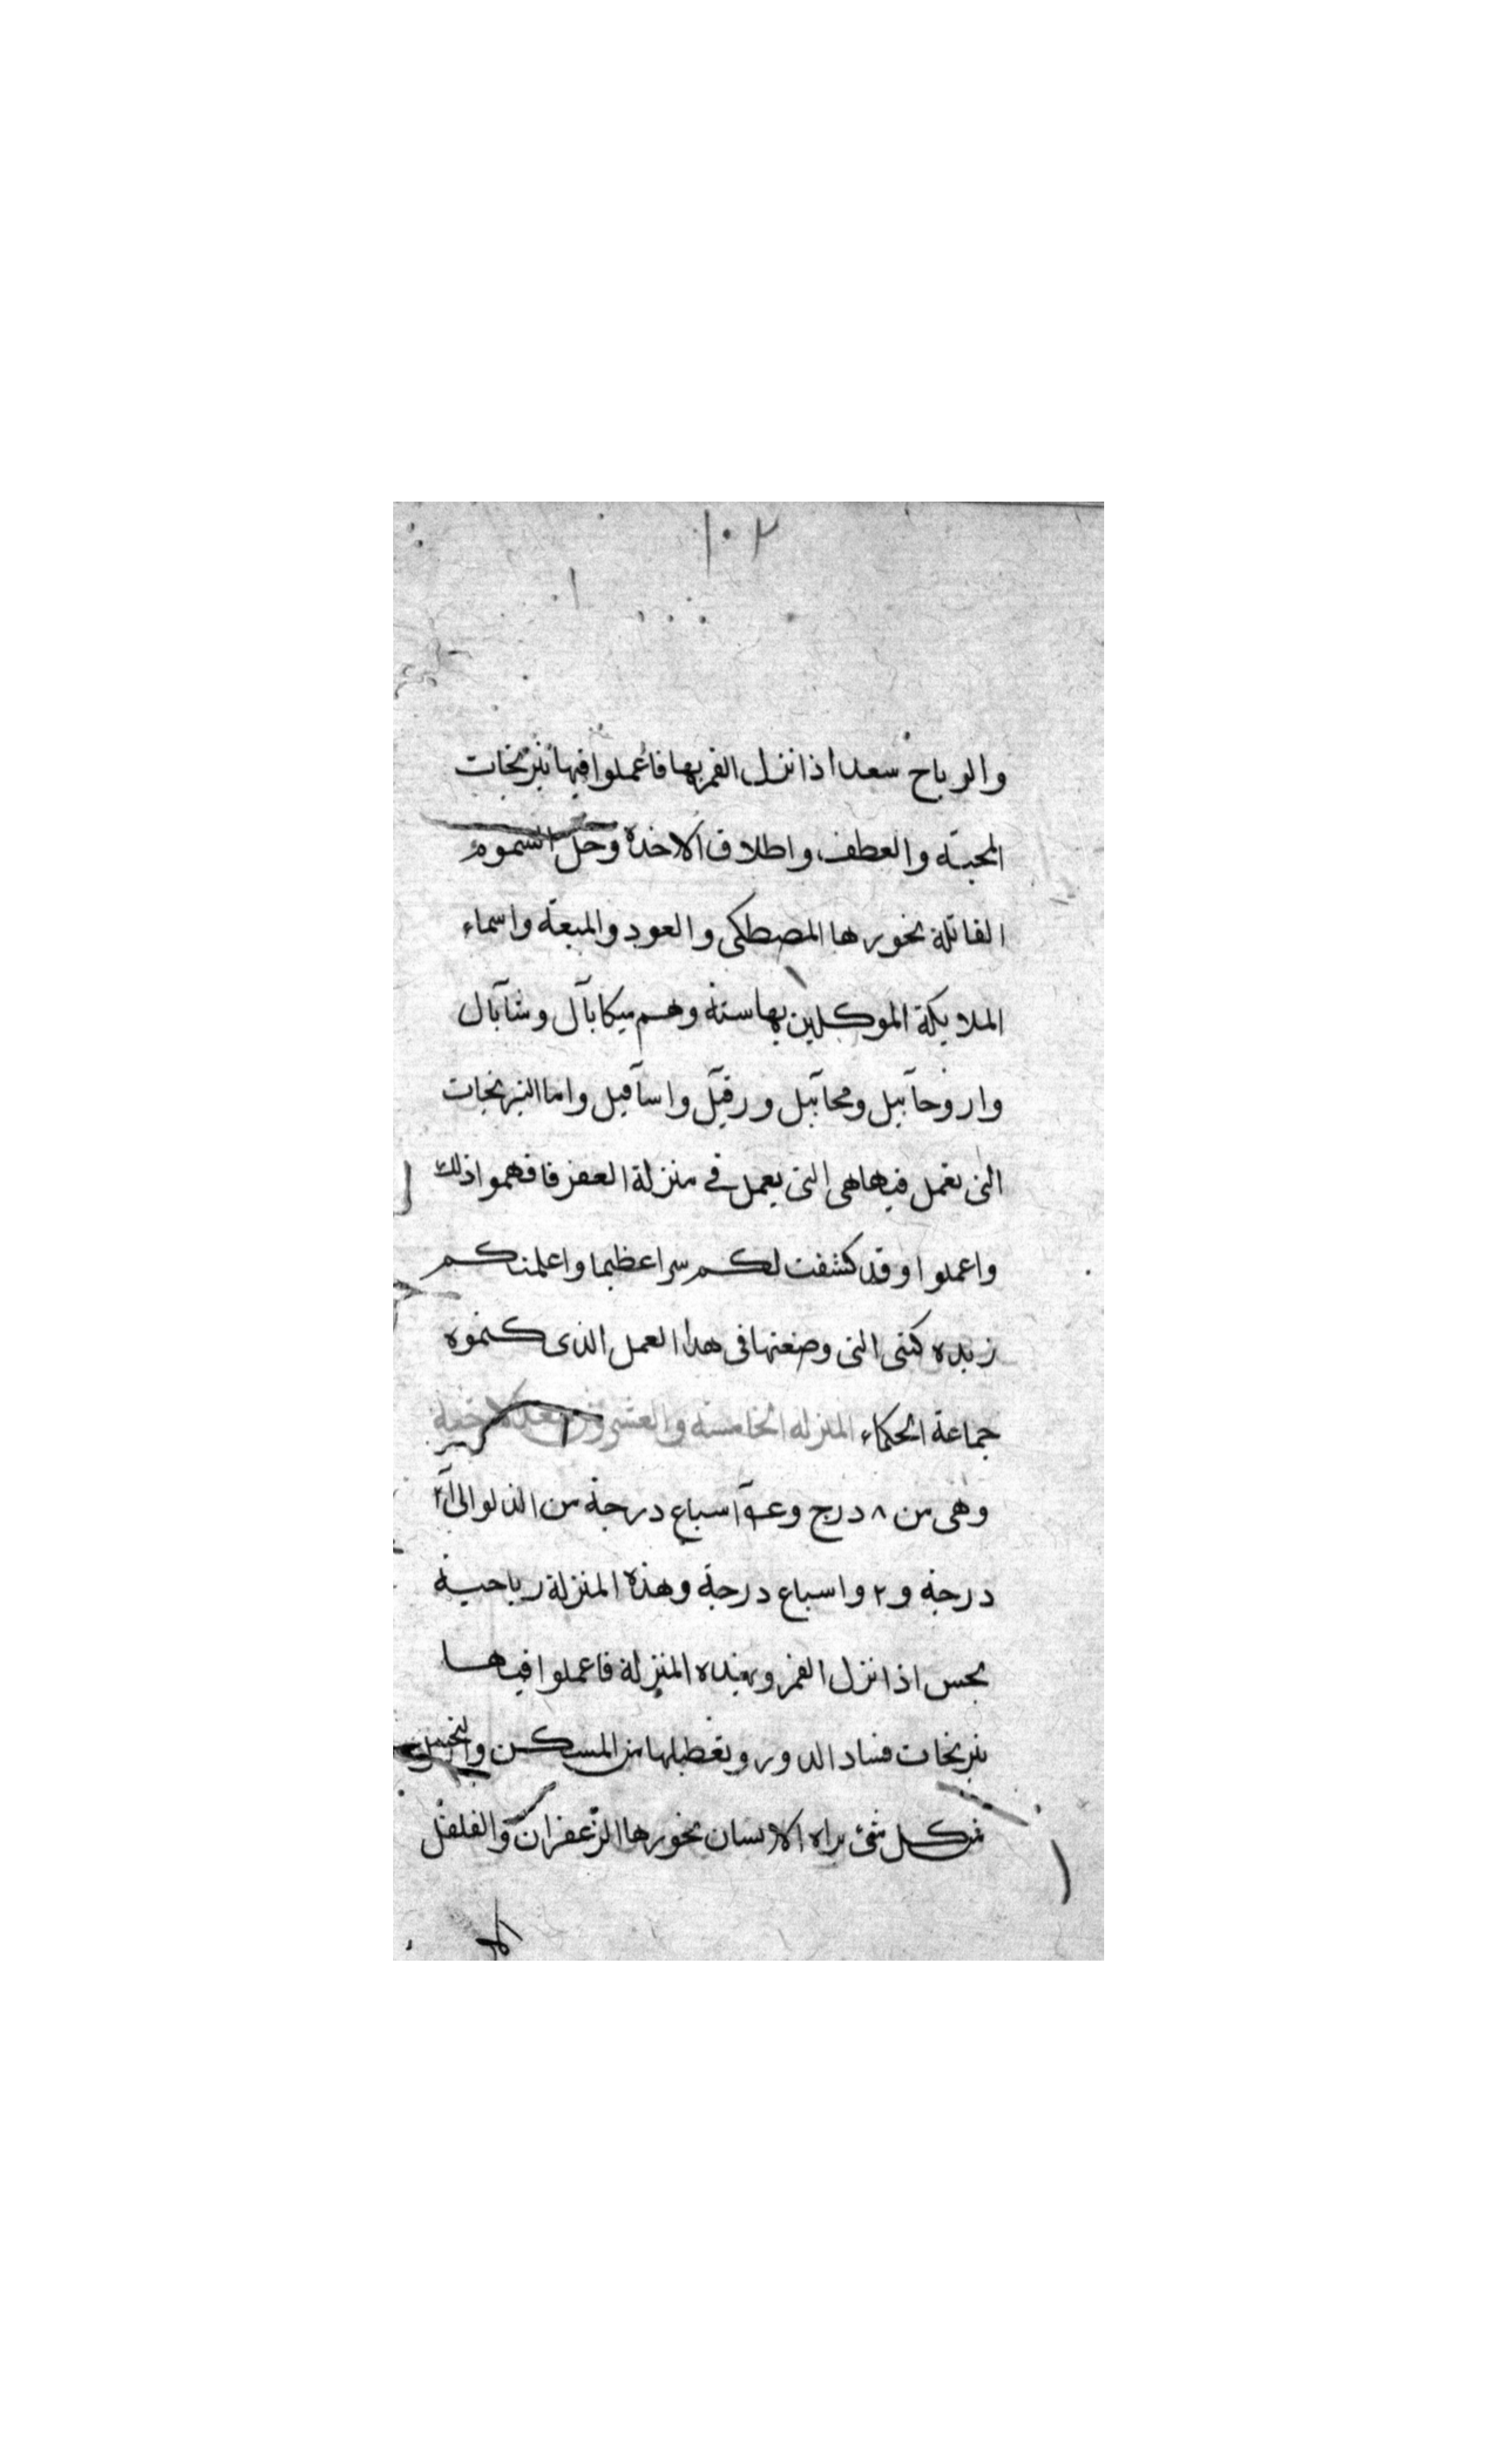 ١٠٢
والرباح سعد اذا نزل القمر بها فاعملوا فيها نيرنجات
المحبة والعطف واطلاق الاخذة وحل السموم
القاتلة بخورها المصطكى والعود والميعة واسماء
الملايكة الموكلين بها ستة وهم ميكاآل وشاآل
واروحاييل ومحاييل ورفيل واساقيل واما النيرنجات
التى تعمل فيها هى التى يعمل فى منزلة العفر فافهموا ذلك
واعملوا وقد كشفت لكم سرا عظيما واعلمتكم
زبده كتبى التى وضعتها فى هذا العمل الذى كتموه
جماعة الحكماء المنزله الخامسة والعشرون سعد الاخبية
وهى من ٨ درج و اسباع درجة من الدلو الى
درجة و٢ واسباع درجة وهذه المنزلة رياحية
نحس اذا نزل القمر وبهذه المنزلة فاعملوا فيها
نيرنجات فساد الدور وتعطيلها من المسكن
من كل شئ يراه الانسان بخورها الزعفران والفلفل